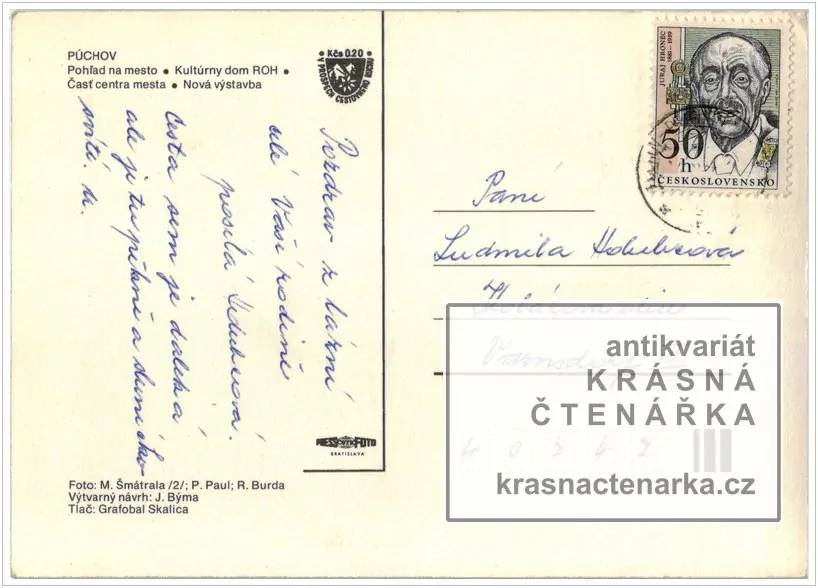 PÚCHOV
Pohľad na mesto • Kultúrny dom ROH •
Časť centra mesta • Nová výstavba
Kčs 0.20
V PROSPECH CESTOVNÉHO RUCHU
JURAJ HRONEC
1881 – 1959
50
h
ČESKOSLOVENSKO
Pozdrav z lázní
celé Vaší rodině
posílá
Cesta sem je daleká
ale je tu pěkně a
Paní
Ludmila Holubcová
Varnsdorf
PRESSFOTO
BRATISLAVA
Foto: M. Šmátrala /2/; P. Paul; R. Burda
Výtvarný návrh: J. Býma
Tlač: Grafobal Skalica
antikvariát
KRÁSNÁ
ČTENÁŘKA
krasnactenarka.cz